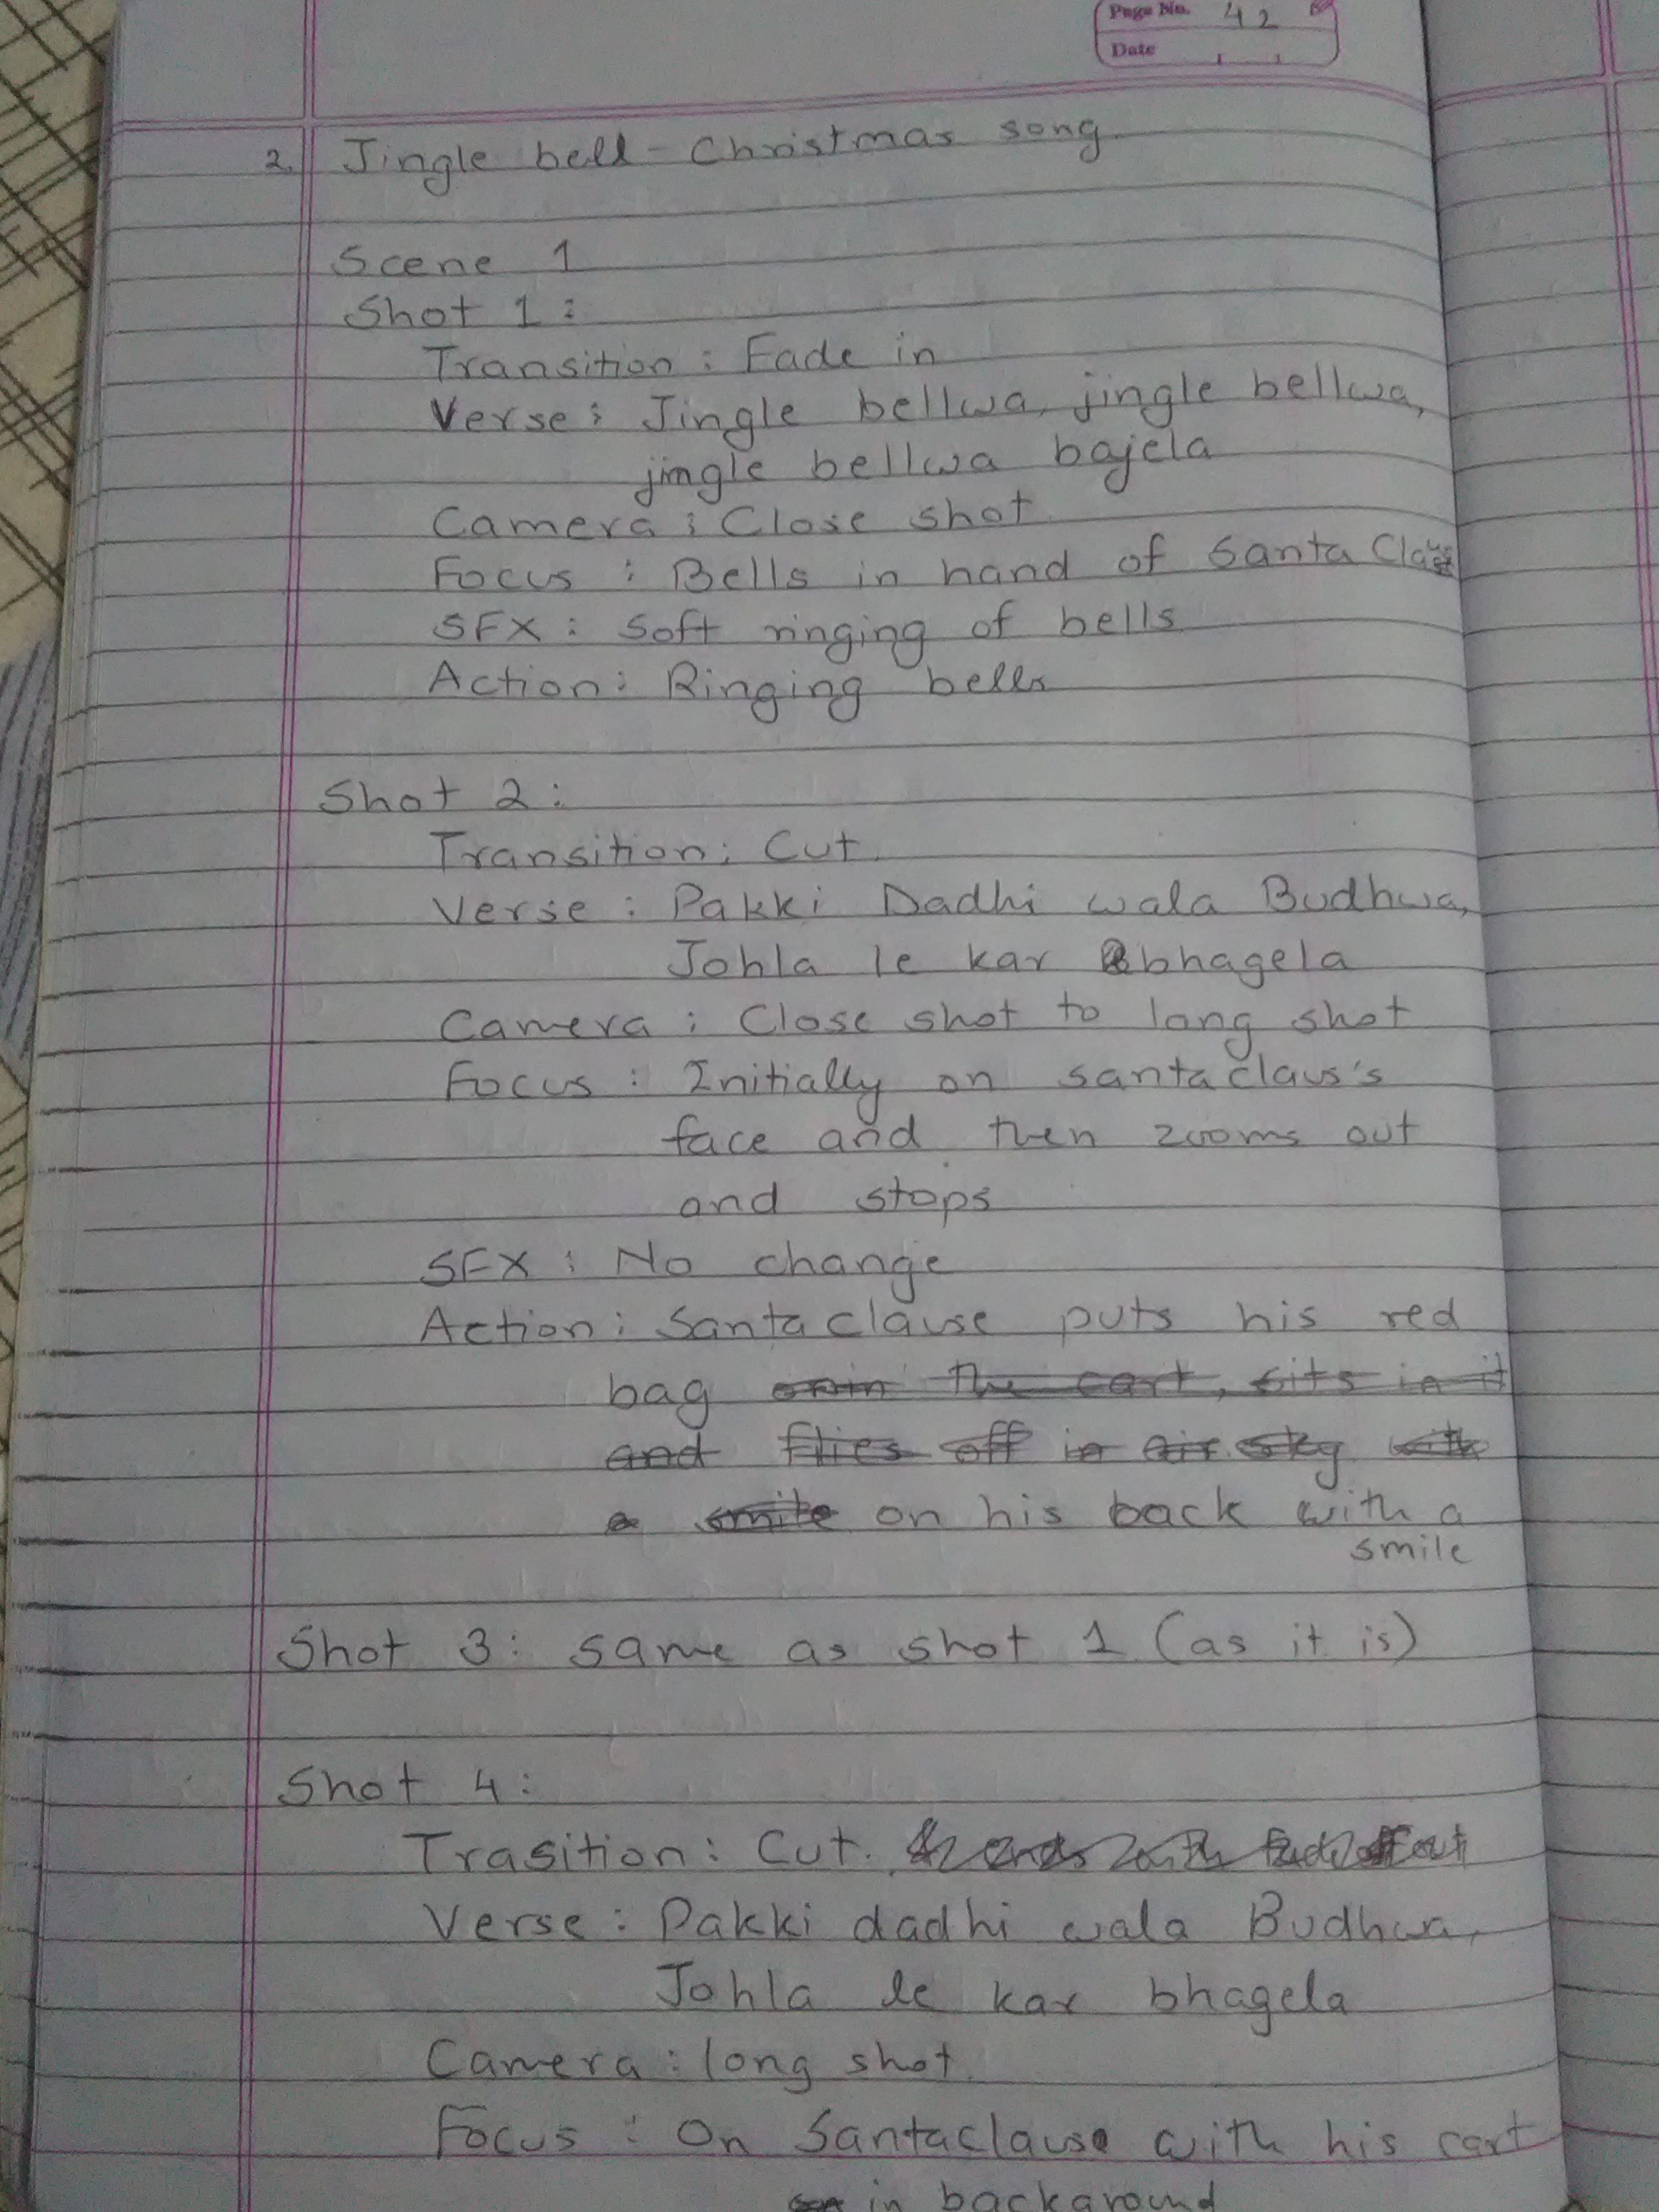 Page No. 42
Date
2. Jingle bell - Christmas song
Scene 1
Shot 1:
Transition: Fade in
Verse: Jingle bellwa, jingle bellwa,
jingle bellwa bajela
Camera: Close shot
Focus: Bells in hand of Santa Claus
SFX: Soft ringing of bells
Action: Ringing bells
Shot 2:
Transition: Cut.
Verse: Pakki Dadhi wala Budhwa,
Johla le kar bhagela
Camera: Close shot to long shot
Focus: Initially on santaclaus's
face and then zooms out
and stops
SFX: No change
Action: Santaclause puts his red
bag the cart, sits in it
and flies off in air sky with
a smile on his back with a
smile
Shot 3: same as shot 1 (as it is)
Shot 4:
Trasition: Cut.
Verse: Pakki dadhi wala Budhwa,
Johla le kar bhagela
Camera: long shot
Focus: On Santaclause with his cart
in background